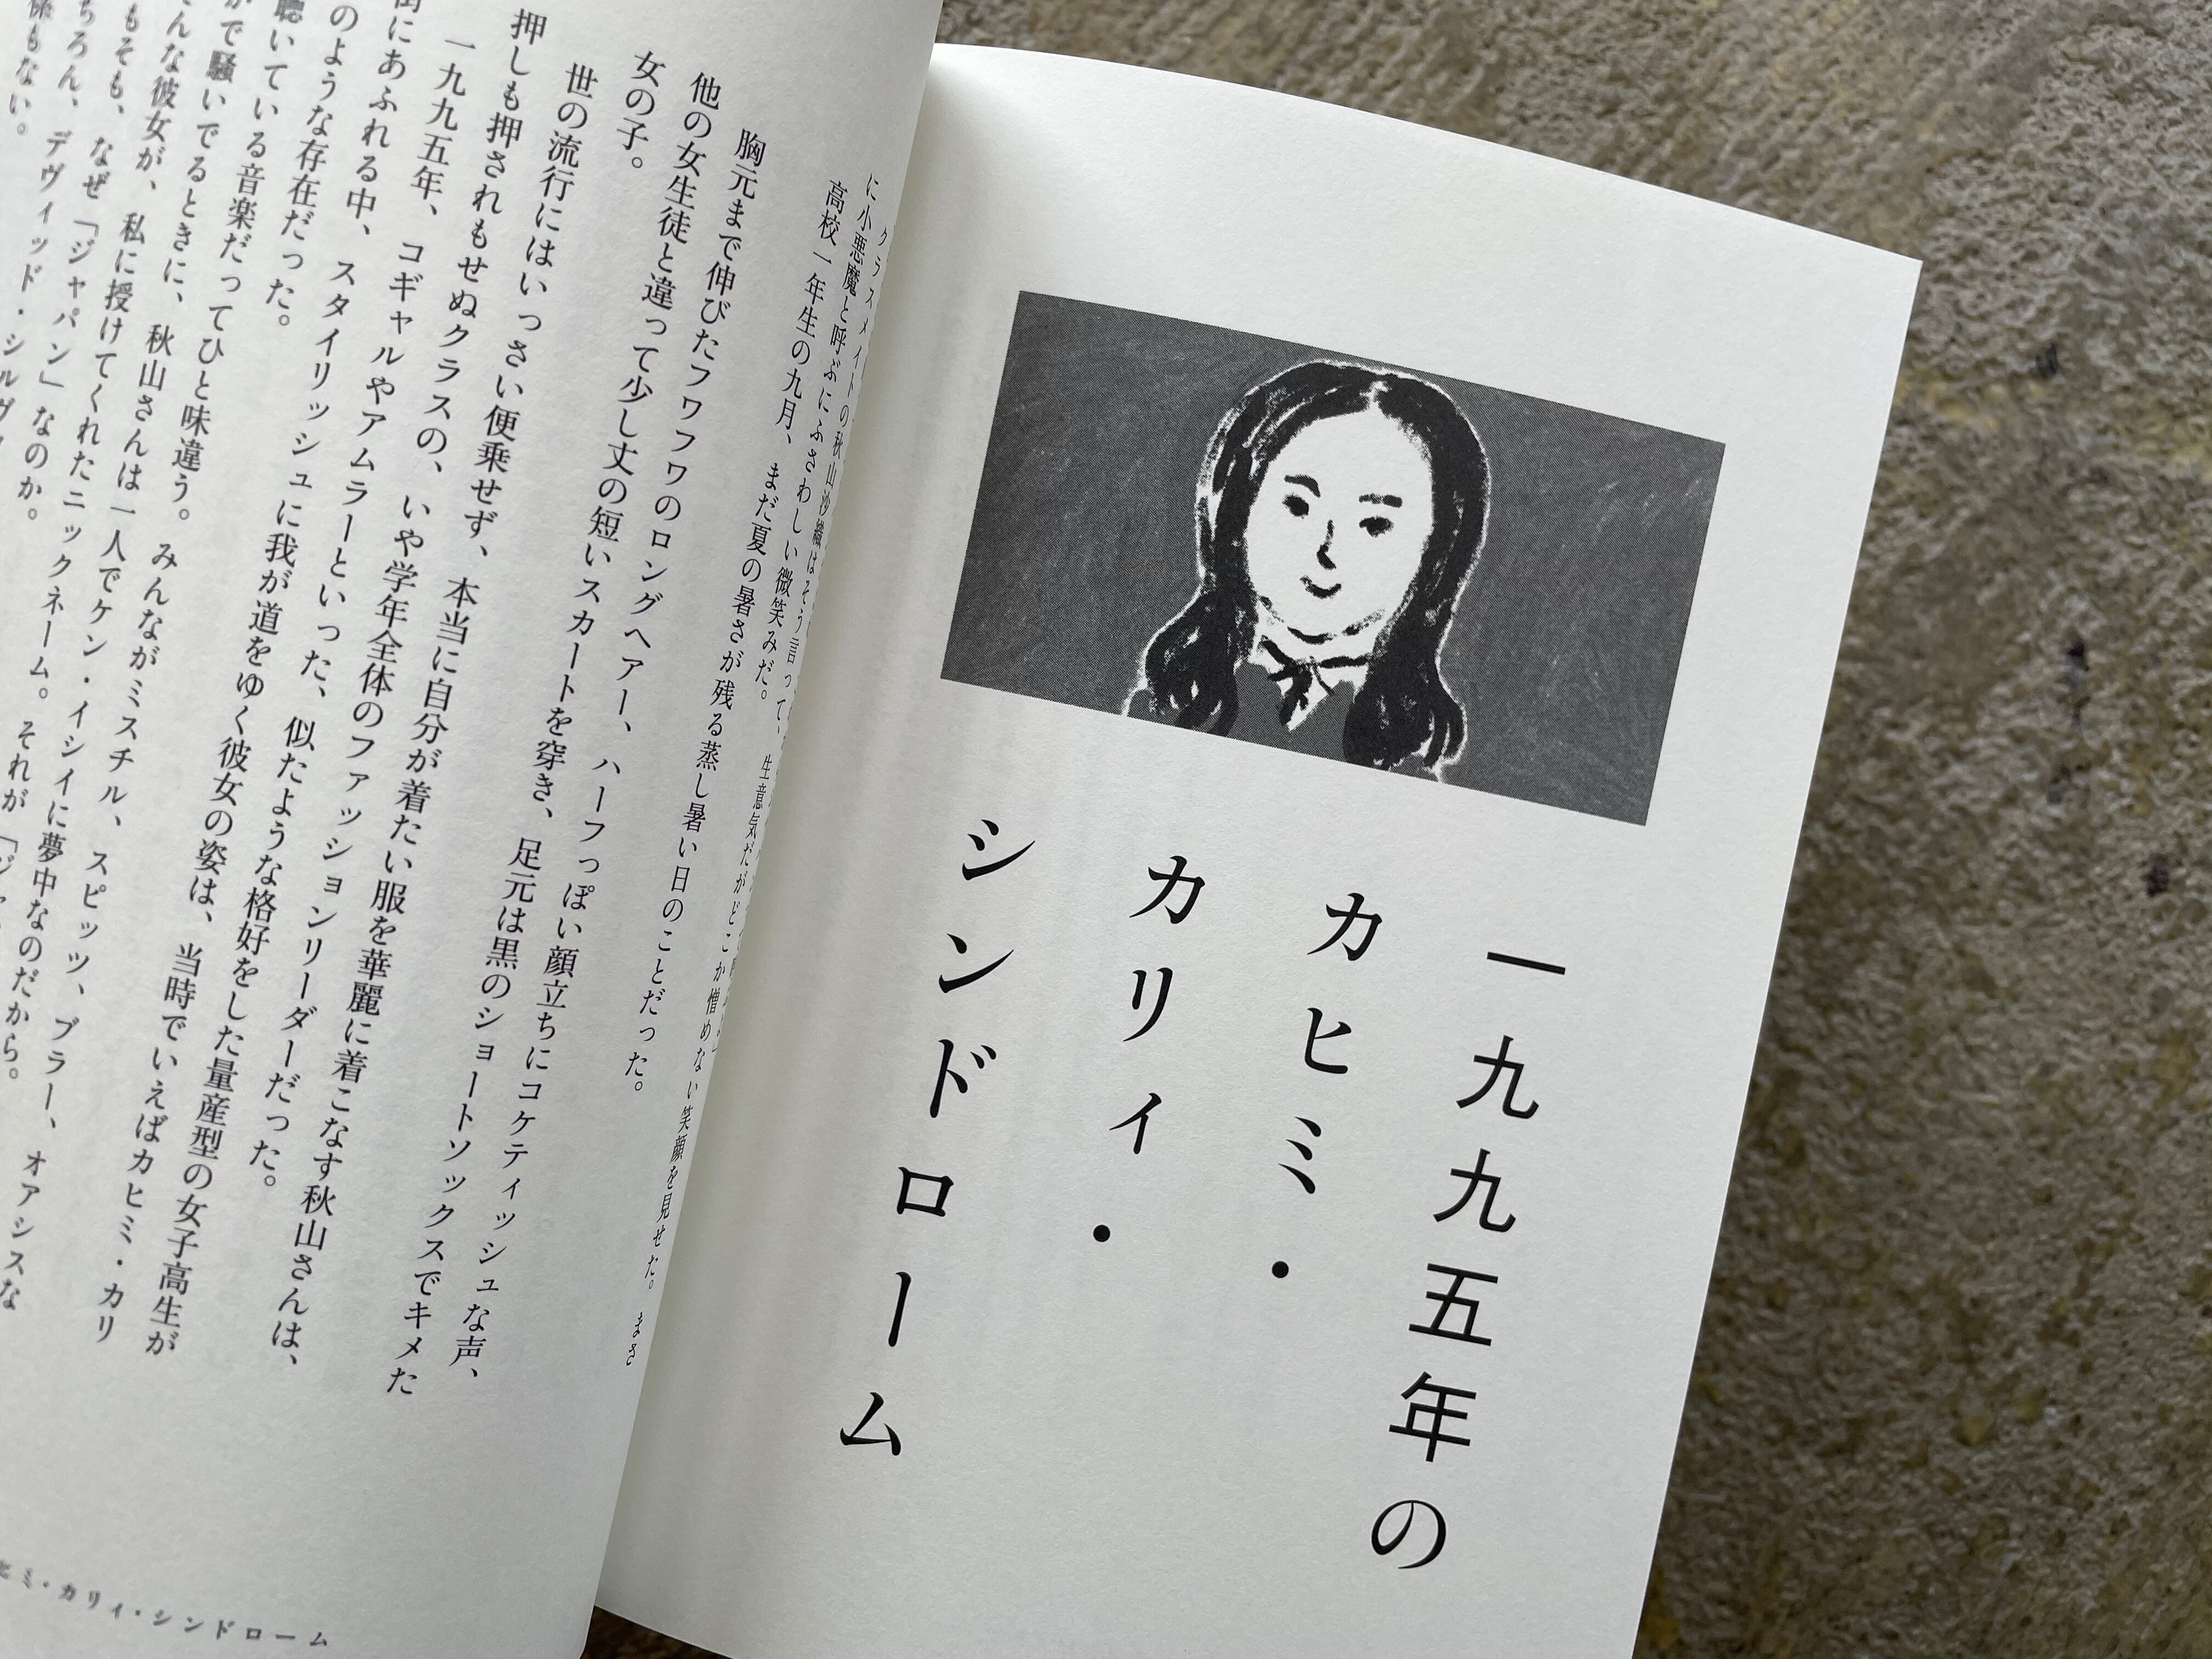 一九九五年の
カヒミ・
カリィ・
シンドローム
クラスメイトの秋山沙織はそう言って、生意気だがどこか憎めない笑顔を見せた。まさ
に小悪魔と呼ぶにふさわしい微笑みだ。
高校一年生の九月、まだ夏の暑さが残る蒸し暑い日のことだった。
胸元まで伸びたフワフワのロングヘアー、ハーフっぽい顔立ちにコケティッシュな声、
他の女生徒と違って少し丈の短いスカートを穿き、足元は黒のショートソックスでキメた
女の子。
世の流行にはいっさい便乗せず、本当に自分が着たい服を華麗に着こなす秋山さんは、
押しも押されもせぬクラスの、いや学年全体のファッションリーダーだった。
一九九五年、コギャルやアムラーといった、似たような格好をした量産型の女子高生が
街にあふれる中、スタイリッシュに我が道をゆく彼女の姿は、当時でいえばカヒミ・カリ
のような存在だった。
聴いている音楽だってひと味違う。みんながミスチル、スピッツ、ブラー、オアシスな
で騒いでるときに、秋山さんは一人でケン・イシイに夢中なのだから。
んな彼女が、私に授けてくれたニックネーム。それが「ジ
もそも、なぜ「ジャパン」なのか。
ちろん、デヴィッド・シルヴ
係もない。
ヒミ・カリィ・シンドローム